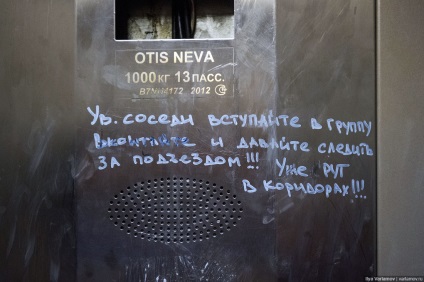 OTIS NEVA
1000 КГ 13 ПАСС.
B7NH4172 2012
Ув. соседи вступайте в группу
Вконтакте и давайте следить
за подъездом!!! Уже
в коридорах!!!
Ilya Varlamov | varlamov.ru